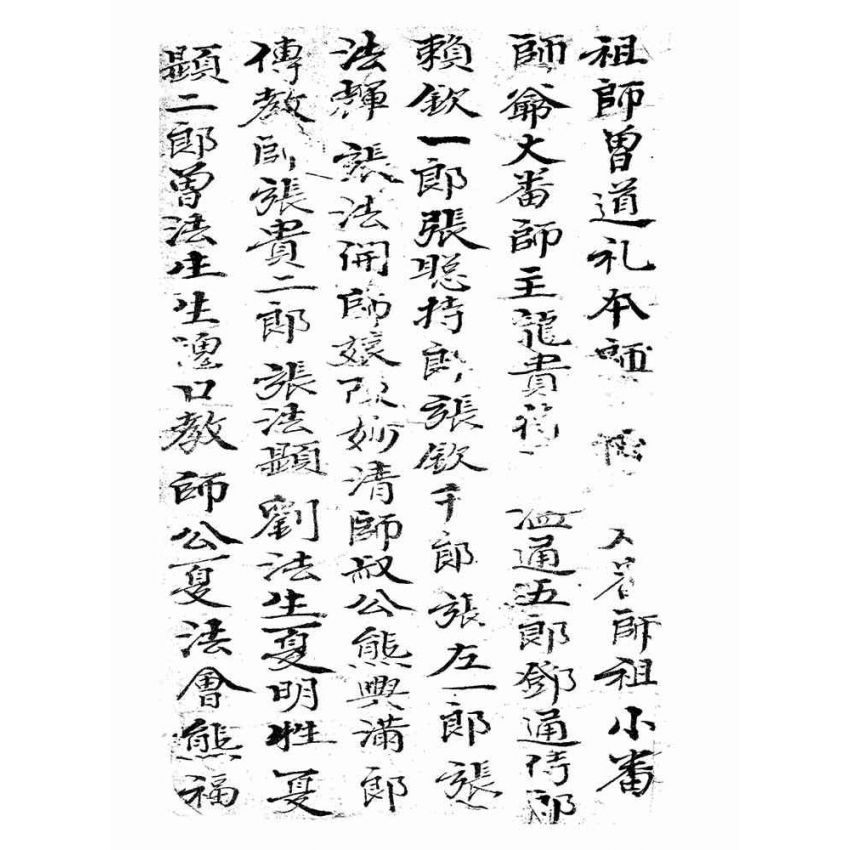 祖師曾道礼本師師祖小番
師爺大番師主龍貴通五郎鄧通侍郎
賴欽一郎張聰持郎張欽千郎張左一郎張
法輝張法開師娘陳妙清師叔公熊興滿郎
傳教師張貴二郎張法顕劉法生夏明性夏
顕二郎曾法生生澧口教師公夏法會熊福